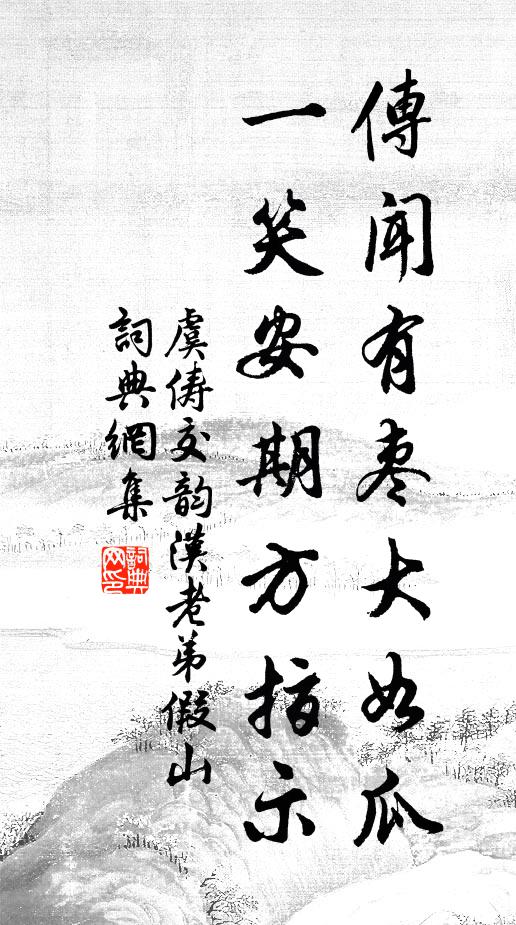 傳聞有棗大如瓜
一笑安期方指示
虞儔交韵漢老弟假山
詞典網集
詞典网印